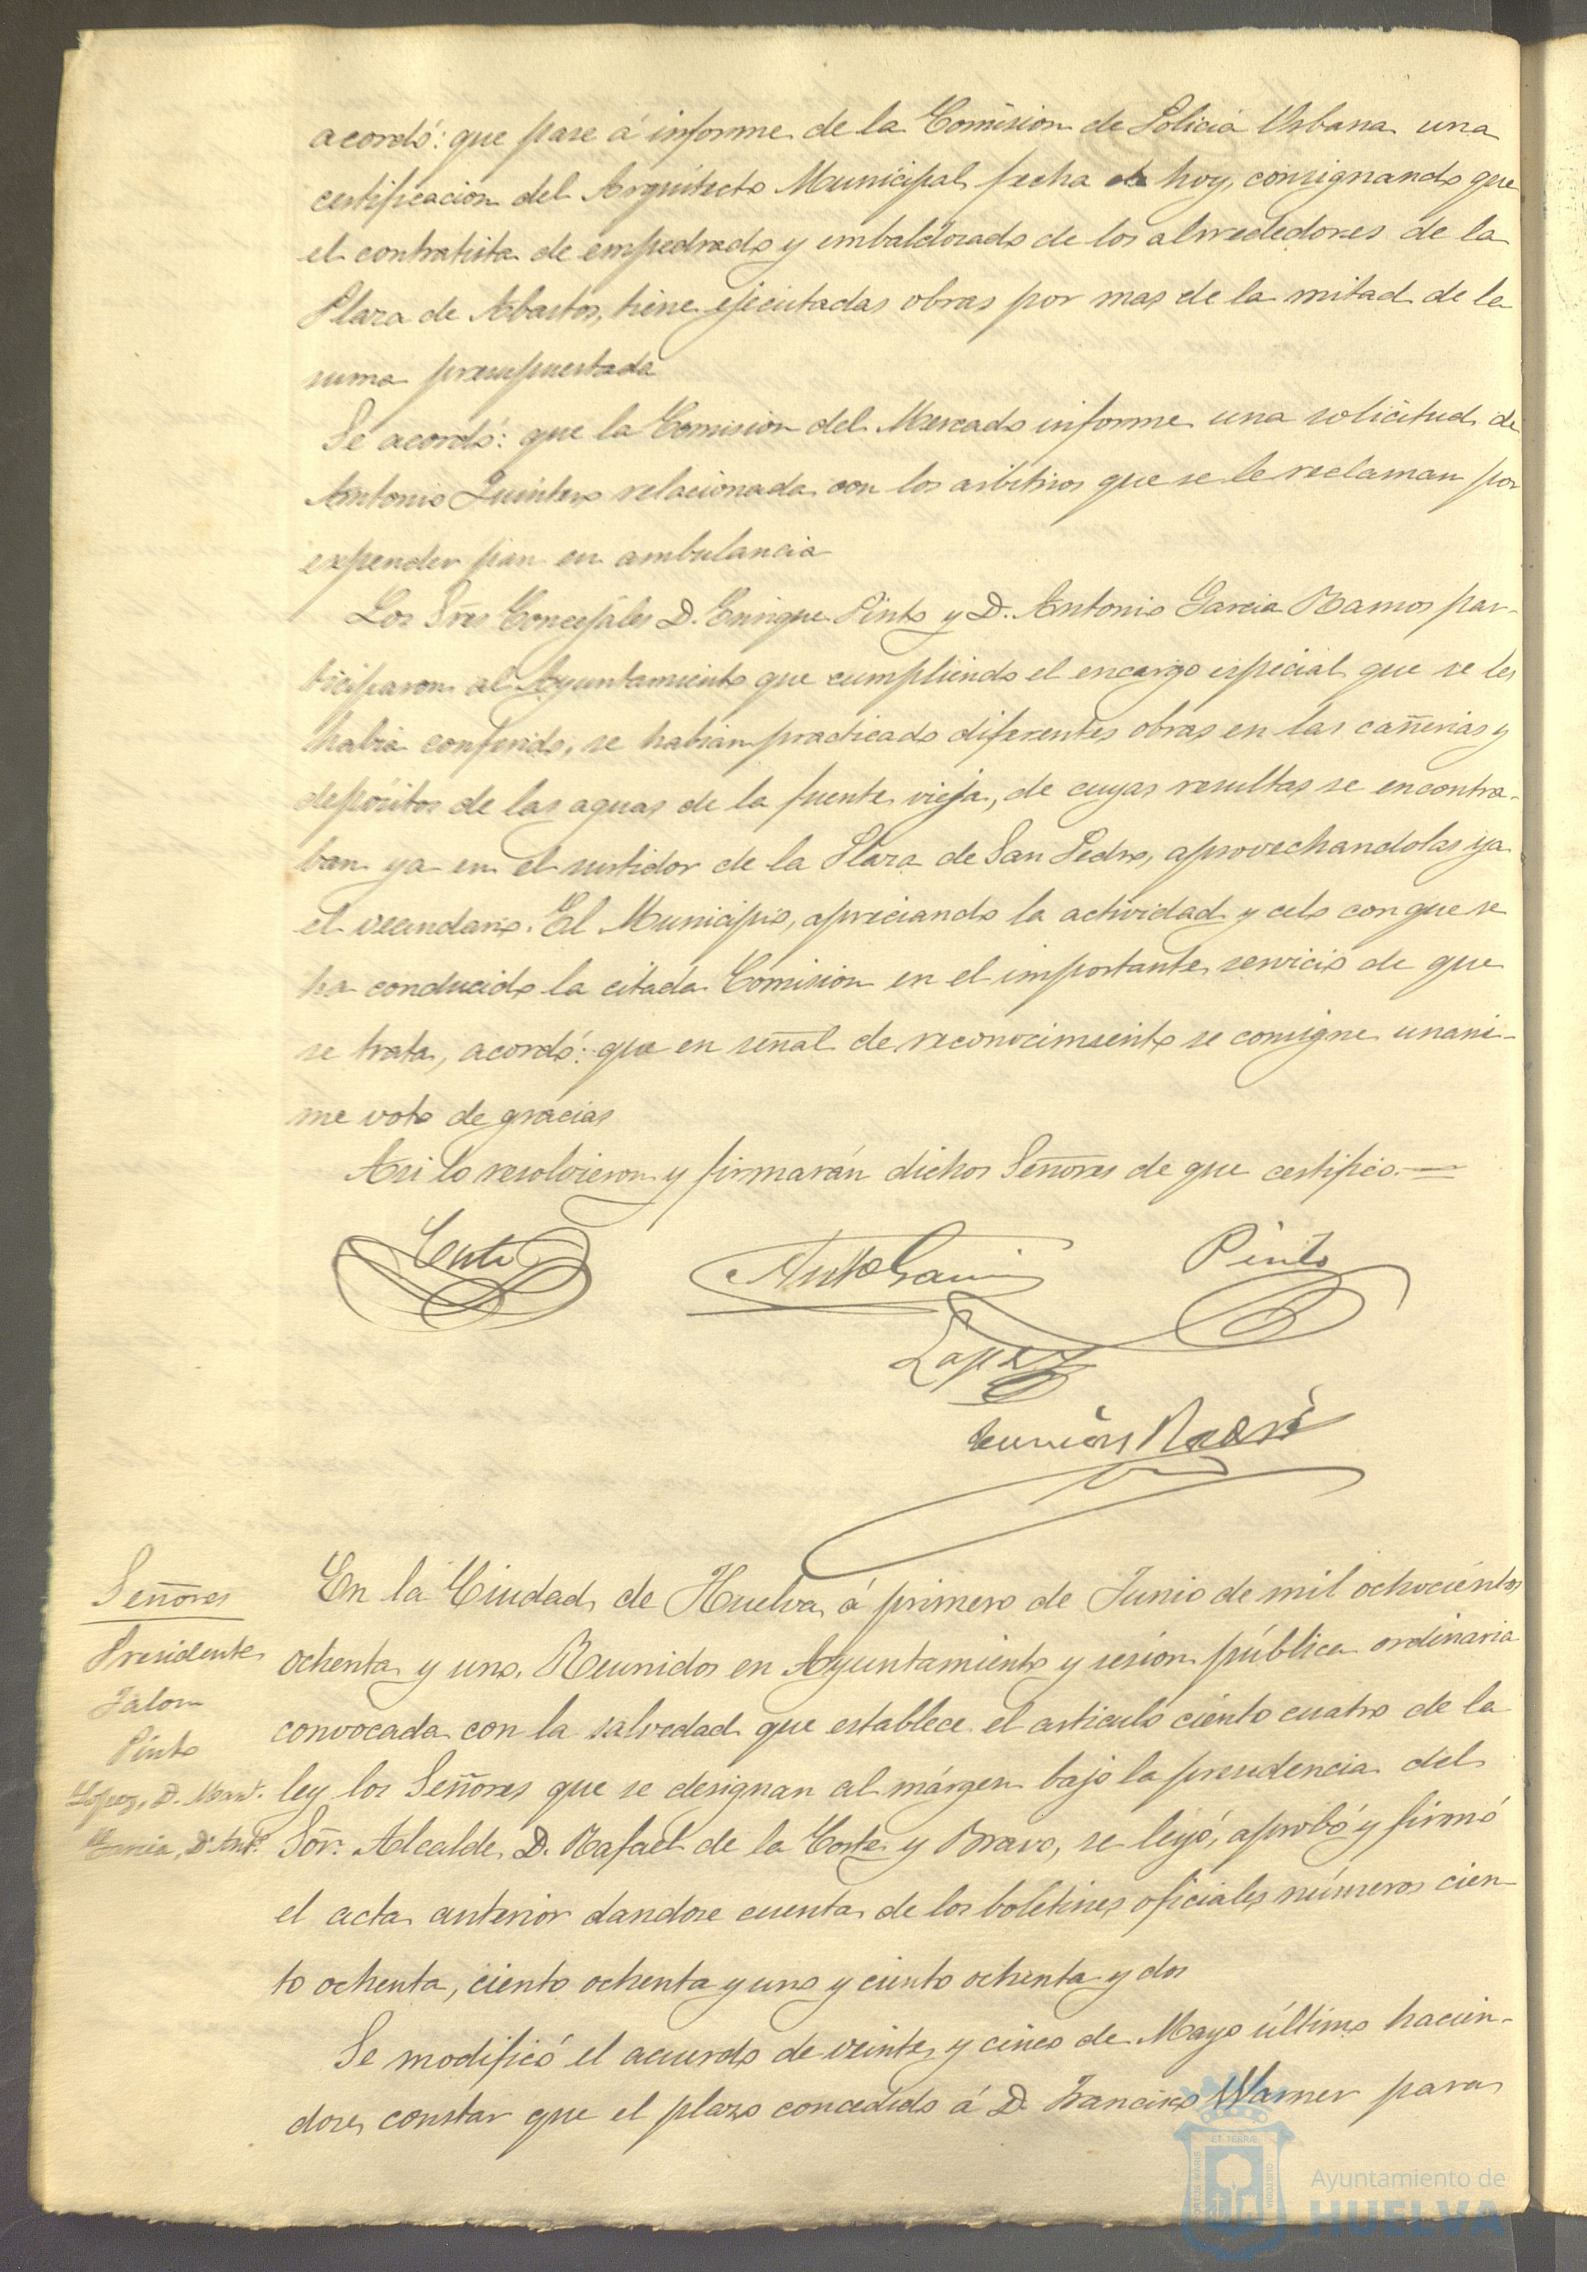 acordó: que pase á informe de la Comision de Policia Urbana una
certificacion del Arquitecto Municipal fecha de hoy, consignando que
el contratista de empedrado y embaldosado de los alrededores de la
Plaza de Abastos, tiene ejecutadas obras por mas de la mitad de la
suma presupuestada
Se acordó: que la Comision del Mercado informe una solicitud de
Antonio Quintero relacionada con los arbitrios que se le reclaman por
expender pan en ambulancia
Los Sres Concejales D. Enrique Pinto y D. Antonio Garcia Ramos par-
ticiparon al Ayuntamiento que cumpliendo el encargo especial que se les
habia conferido, se habian practicado diferentes obras en las cañerias y
depósitos de las aguas de la fuente vieja, de cuyas resultas se encontra-
ban ya en el surtidor de la Plaza de San Pedro, aprovechandolas ya
el vecindario. El Municipio, apreciando la actividad y celo con que se
ha conducido la citada Comision en el importante servicio de que
se trata, acordó: que en señal de reconocimiento se consigne unani-
me voto de gracias
Asi lo resolvieron y firmarán dichos Señores de que certifico.=
Antº Garcia
Pinto
Lopez
Señores
Presidente
Jalon
Pinto
Lopez, D. Manl.
Garcia, D. Antº.
En la Ciudad de Huelva á primero de Junio de mil ochocientos
ochenta y uno. Reunidos en Ayuntamiento y sesion pública ordinaria
convocada con la salvedad que establece el articulo ciento cuatro de la
ley los Señores que se designan al márgen bajo la presidencia del
Sor. Alcalde D. Rafael de la Corte y Bravo, se leyó, aprobó y firmó
el acta anterior dandose cuenta de los boletines oficiales números cien-
to ochenta, ciento ochenta y uno y ciento ochenta y dos
Se modificó el acuerdo de veinte y cinco de Mayo último hacien-
dose constar que el plazo concedido á D. Francisco Warner para
Ayuntamiento de
HUELVA